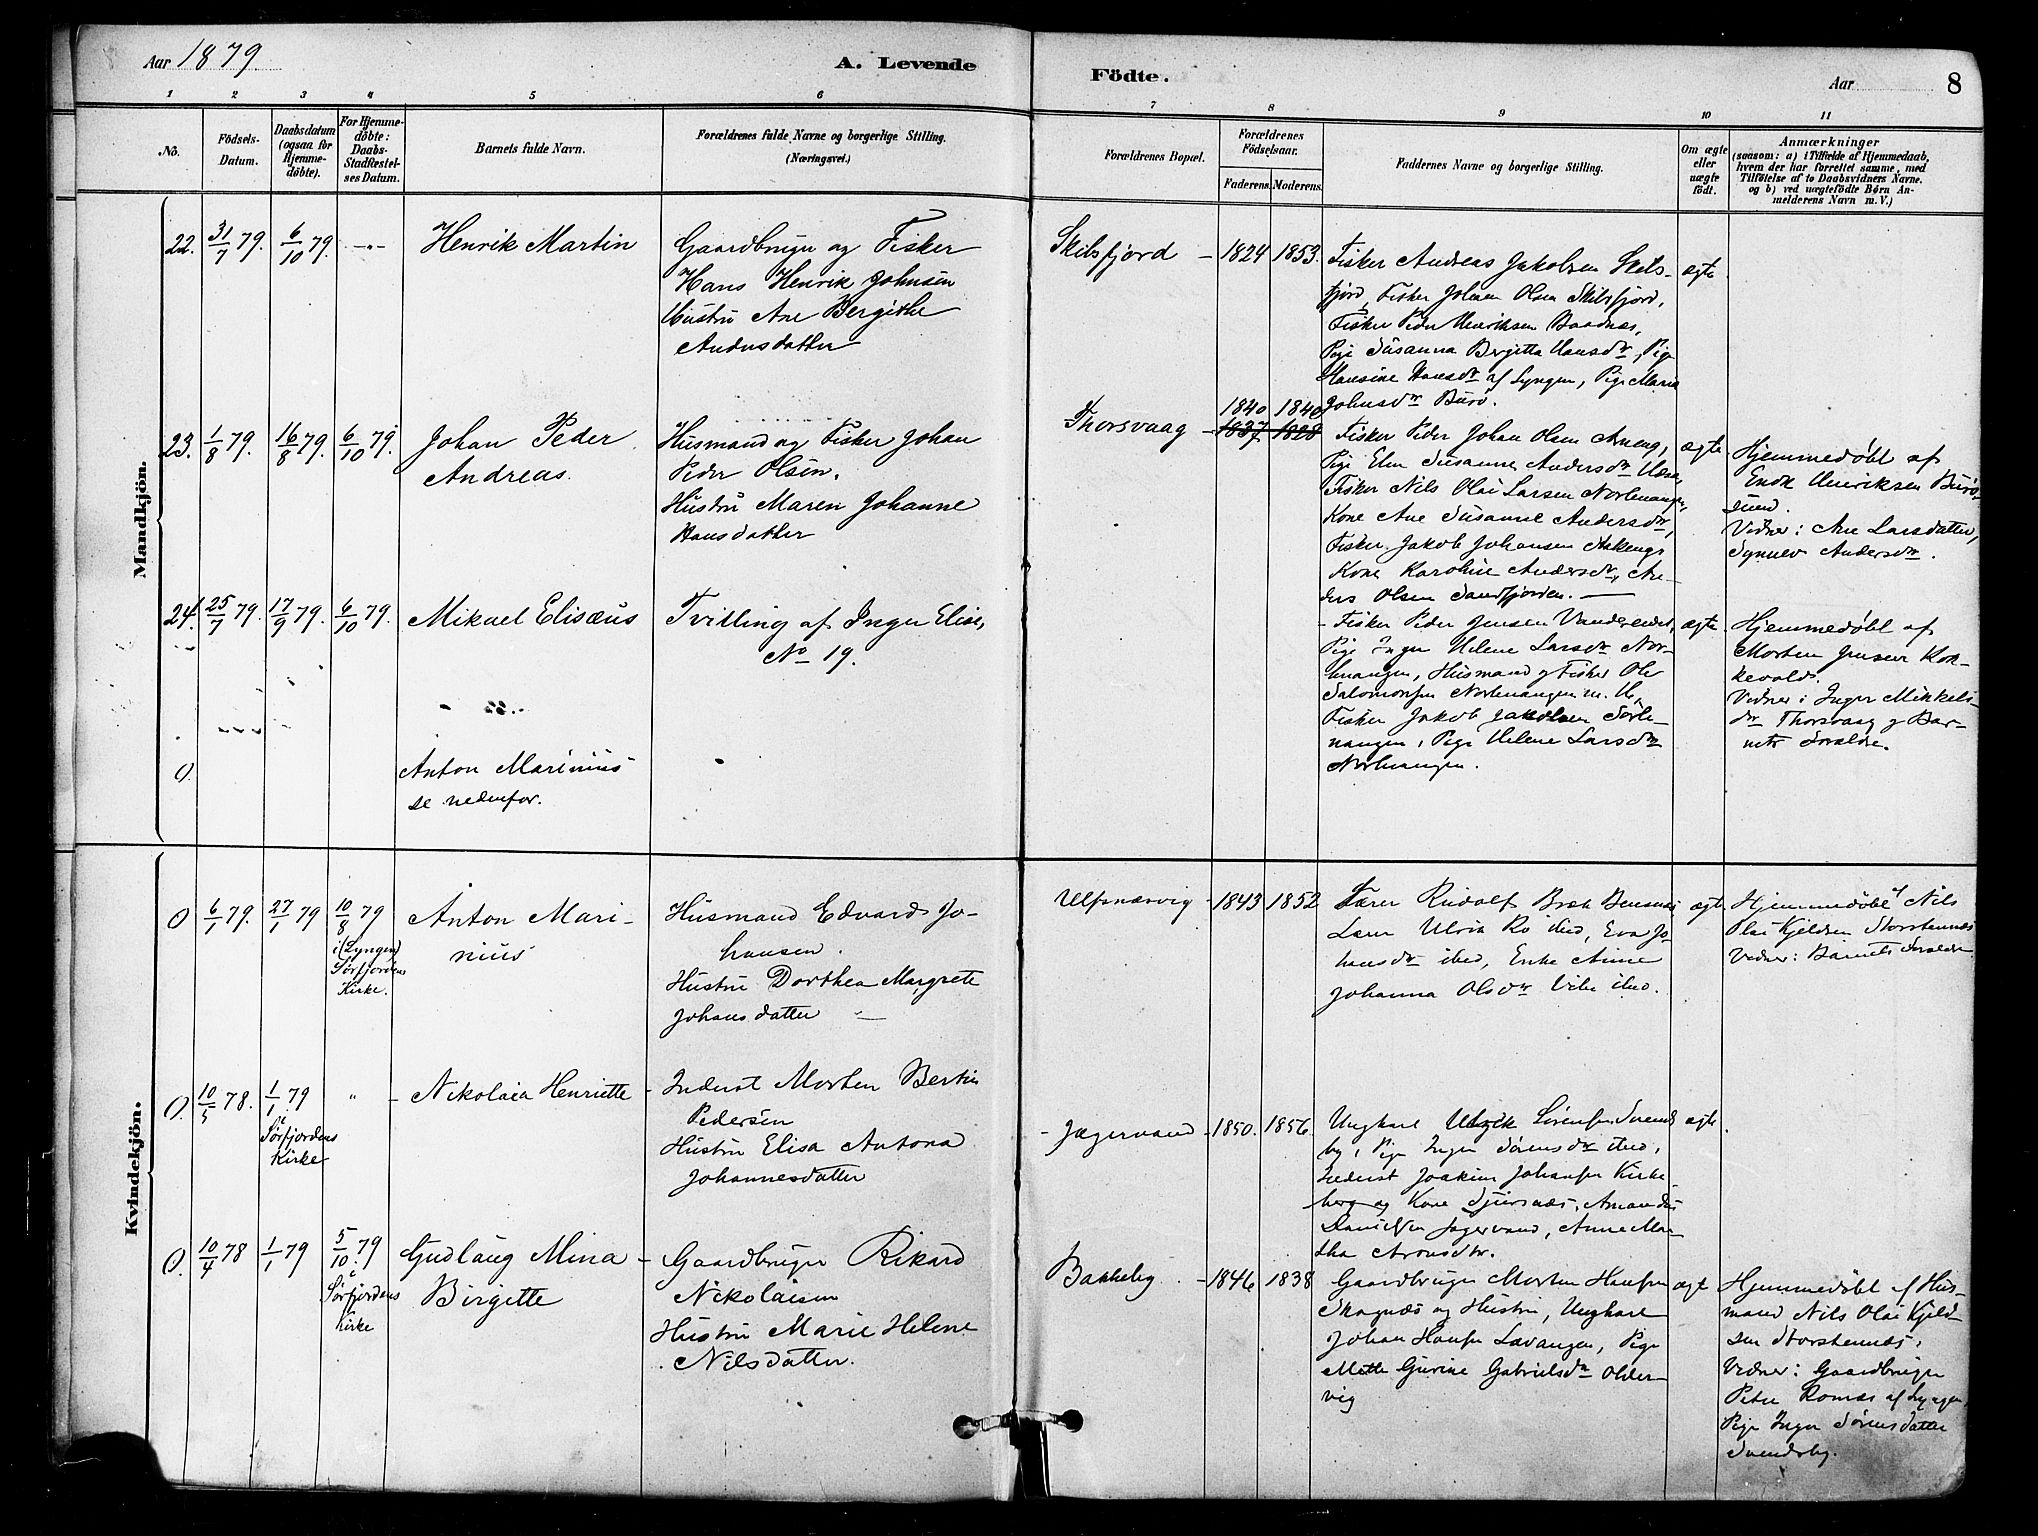 Aar 1879
A. Levende
Födte.
Aar
8
1 2 3 4 5 6 7 8 9 10 11
No.
Födsels-
Datum.
Daabsdatum
(ogsaa for
Hjemme-
döbte).
For Hjemme-
döbte:
Daabs-
Stadfæstel-
ses Datum.
Barnets fulde Navn.
Forældrenes fulde Navne og borgerlige Stilling.
(Næringsvei.)
Forældrenes Bopæl.
Forældrenes
Födselsaar.
Faderens. Moderens.
Faddernes Navne og borgerlige Stilling.
Om ægte
eller
uægte
födt.
Anmærkninger
(saasom: a) i Tilfælde af Hjemmedaab,
hvem der har forrettet samme, med
Tilföielse af to Daabsvidners Navne.
og b) ved uægtefödte Börn An-
melderens Navn m. V.)
Mandkjön.
22. 31/7 79. 6/10 79. -"-
Henrik Martin
Gaardbruger og Fisker
Hans Henrik Johnsen
Hustru Ane Bergithe
Andersdatter
Skilsfjord - 1824 1853.
Fisker Andreas Jakobsen Skils-
fjord, Fisker Johan Olsen Skilsfjord,
Fisker Peder Henriksen Baadnæs,
Pige Susanna Bergitta Hansdtr, Pige
Hansine Hansdtr af Lyngen, Pige Maria
Johnsdtr Burö.
ægte
23. 1/8 79. 16/8 79. 6/10 79.
Johan Peder
Andreas.
Husmand og Fisker Johan
Peder Olsen.
Hustru Maren Johanne
Hansdatter
Thorsvaag - 1840 1840
1837 1828
Fisker Peder Johan Olsen
Pige Elen Susanne Andersdtr
Fisker Nils Olai Larsen Norlenangen,
Kone Ane Susanne Andersdtr,
Fisker Jakob Johansen
Kone Karoline Andersdtr, An-
ders Olsen Sandfjorden.
ægte
Hjemmedöbt af
Henriksen Burö-
sund.
Vidner: Ane Larsdatter,
Andersdtr.
24. 25/7 79. 17/9 79. 6/10 79.
Mikael Elisæus
Tvilling af Inger Elise,
No 19.
- Fisker Peder Jensen
Pige Inger Helene Larsdtr Nor-
lenangen, Husmand og Fisker Ole
Salomonsen Norlenangen m. H.
Fisker Jakob Jakobsen Sörle-
nangen, Pige Helene Larsdtr
Norlenangen.
ægte
Hjemmedöbt af
Morten Jensen Kok-
kevold.
Vidner: Inger Mikkels-
dtr Thorsvaag og Bar-
nets Forældre.
0.
Anton Marinius
se nedenfor.
Kvindekjön.
0 6/1 79. 27/1 79 10/8 79
i (Lyngen)
Sörfjordens
Kirke.
Anton Mari-
nius
Husmand Edvard Jo-
hansen.
Hustru Dorthea Margrete
Johansdatter
Ulfsnæsvig - 1843 1852
Lærer Rudolf
Ulrik ibid, Eva Jo-
hansdtr ibid, Enke Anne
Johanna Olsdtr ibid.
ægte
Hjemmedöbt af Nils
Olai Kjeldsen Storstennæs
Vidner: Barnets Forældre
0. 10/5 78. 1/1 79
i
Sörfjordens
Kirke
"
Nikolaia Henriette
Inderst Morten Bertin
Pedersen
Hustru Elisa Antona
Johannesdatter
- Jægervand - 1850. 1856.
Ungkarl Sörensen Svends-
by, Pige Inger Sörensdtr ibid,
Inderst Joakim Johansen Kirke-
berg og Kone Sjursnæs, Amandus
Danielsen Jægervand, Anne Mar-
tha Aronsdtr.
ægte
0. 10/4 78 1/1 79 5/10 79
i
Sörfjordens
Kirke
Gudlaug Mina
Birgitte
Gaardbruger Rikard
Nikolaisen
Hustru Marie Helene
Nilsdatter.
Bakkeby - 1846 1838
Gaardbruger Morten Hansen
Skognæs og Hustru, Ungkarl
Johan Hansen Lavangen, Pige
Mette Gurine Gabrielsdtr Older-
vig
ægte
Hjemmedöbt af Hus-
mand Nils Olai Kjeld-
sen Storstennæs,
Vidner: Gaardbruger
Peder af Lyngen
Pige Inger Sörensdatter
Svendsby.